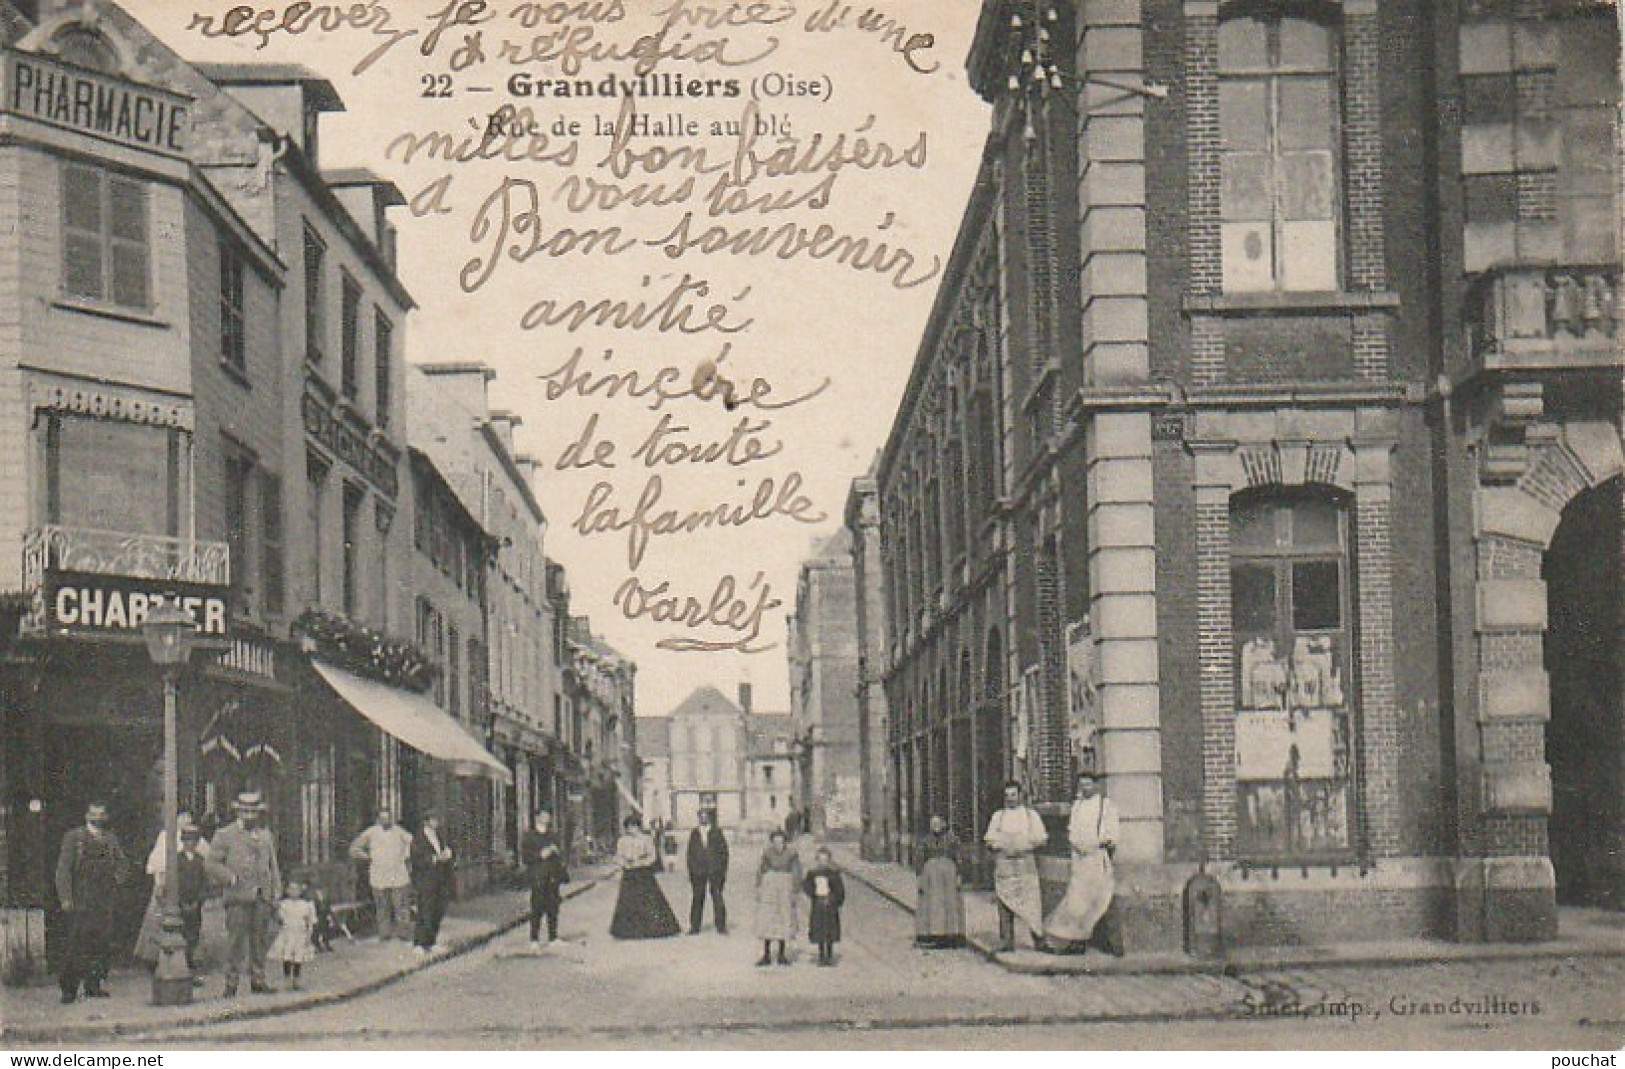 reçevér je vous prie d'une
réfugia
22 — Grandvilliers (Oise)
Rue de la Halle au blé
milles bon baisérs
a vous tous
Bon souvenir
amitié
sinçére
de touté
la famille
Varlét
PHARMACIE
CHARTIER
Smet, imp., Grandvilliers
pouchat